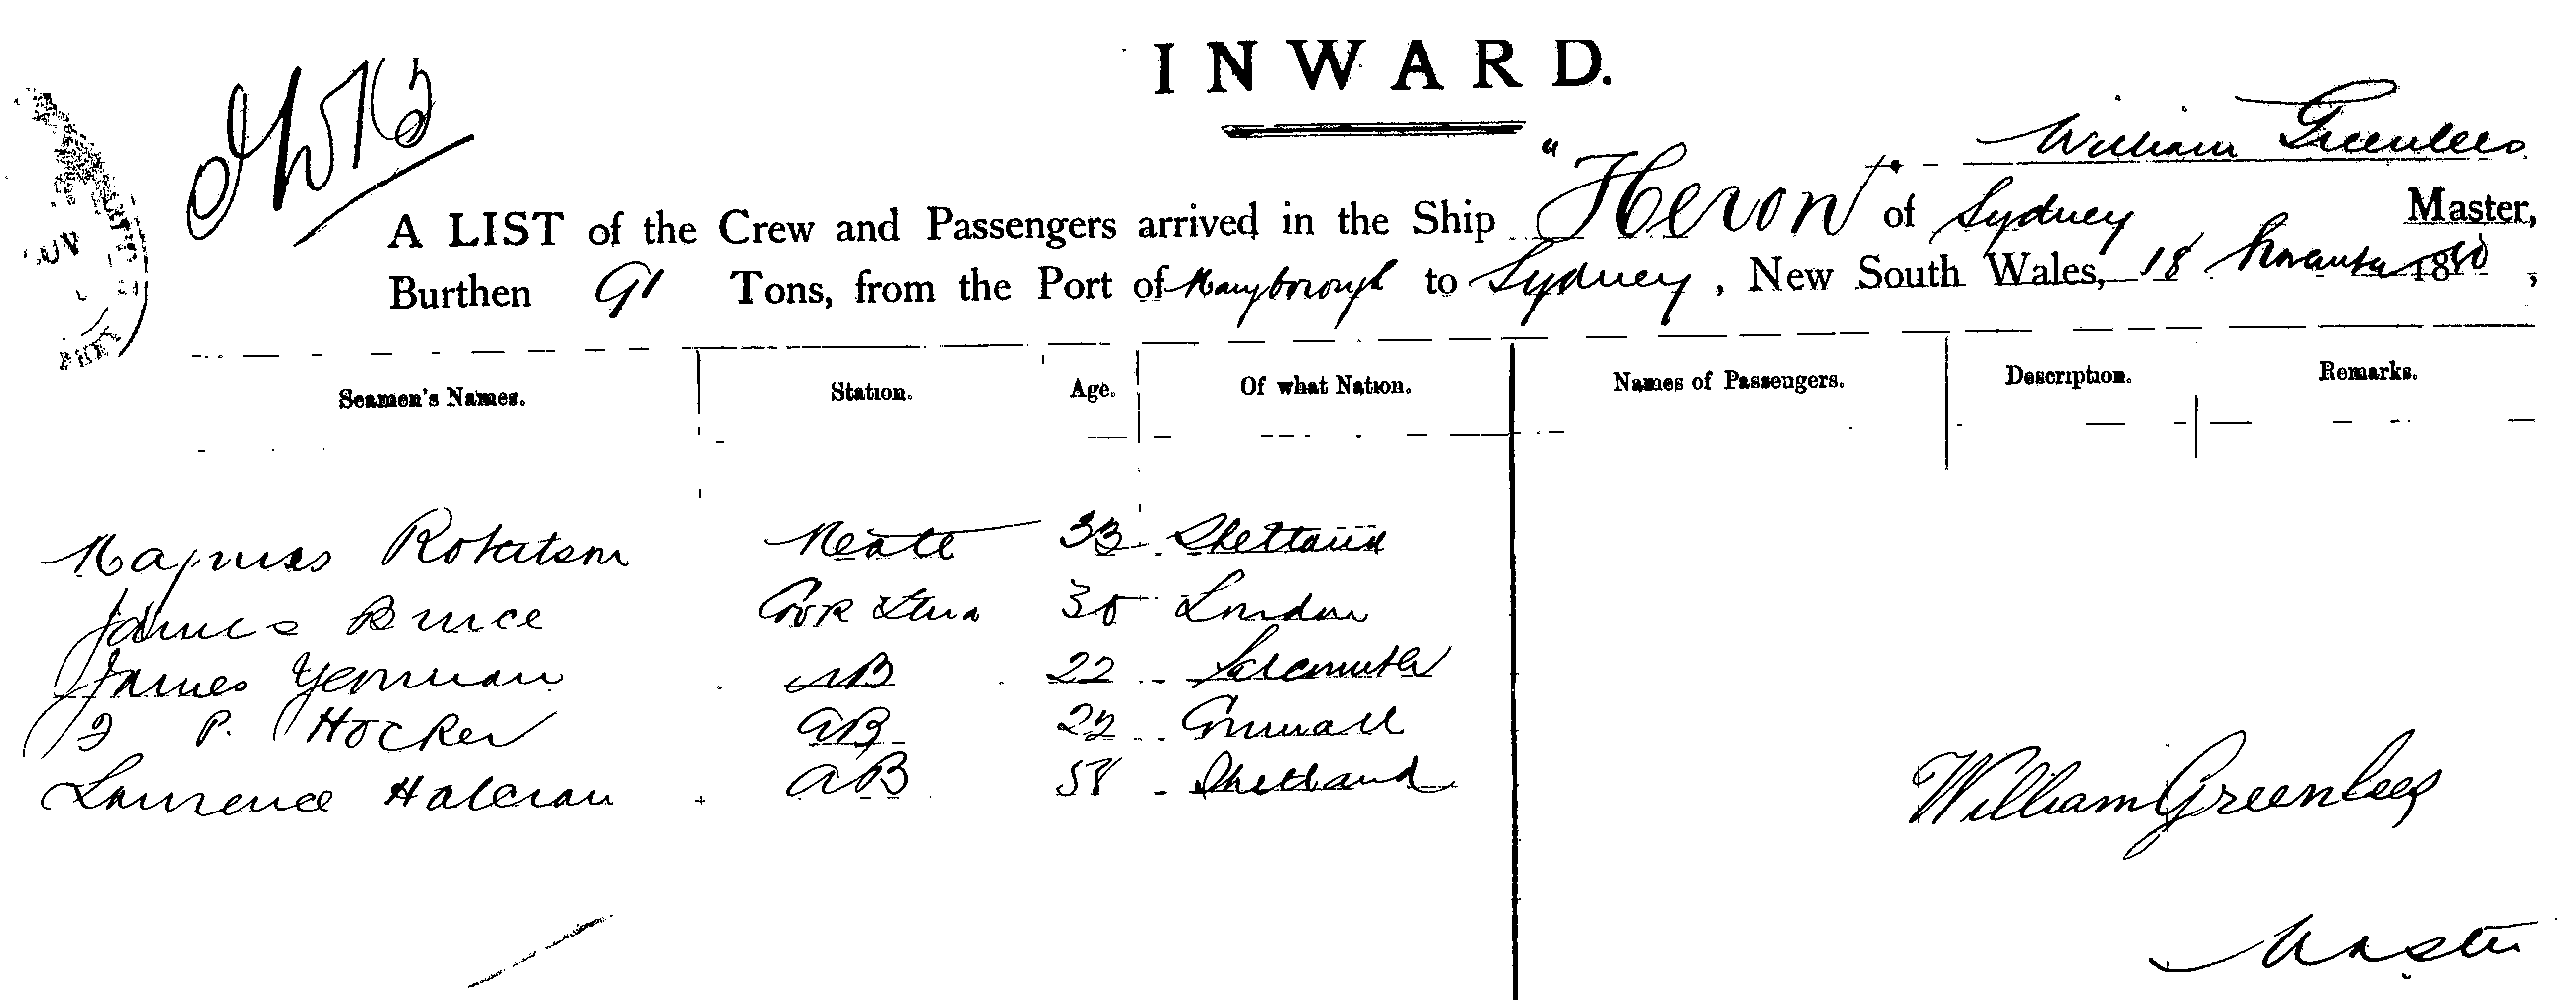 INWARD.
William Greenlees
A LIST of the Crew and Passengers arrived in the Ship "Heron" of Sydney Master,
Burthen 91 Tons, from the Port of Maryborough to Sydney, New South Wales, 18 1880,
Seamen's Names. Station. Age. Of what Nation. Names of Passengers. Description. Remarks.
Magnus Robertson Mate 33 Shetland
James Bruce 30 London
James Yeoman AB 22
P. Hocker AB 22 Cornwall
Lawrence Halcrow AB 58 Shetland
William Greenlees
Master